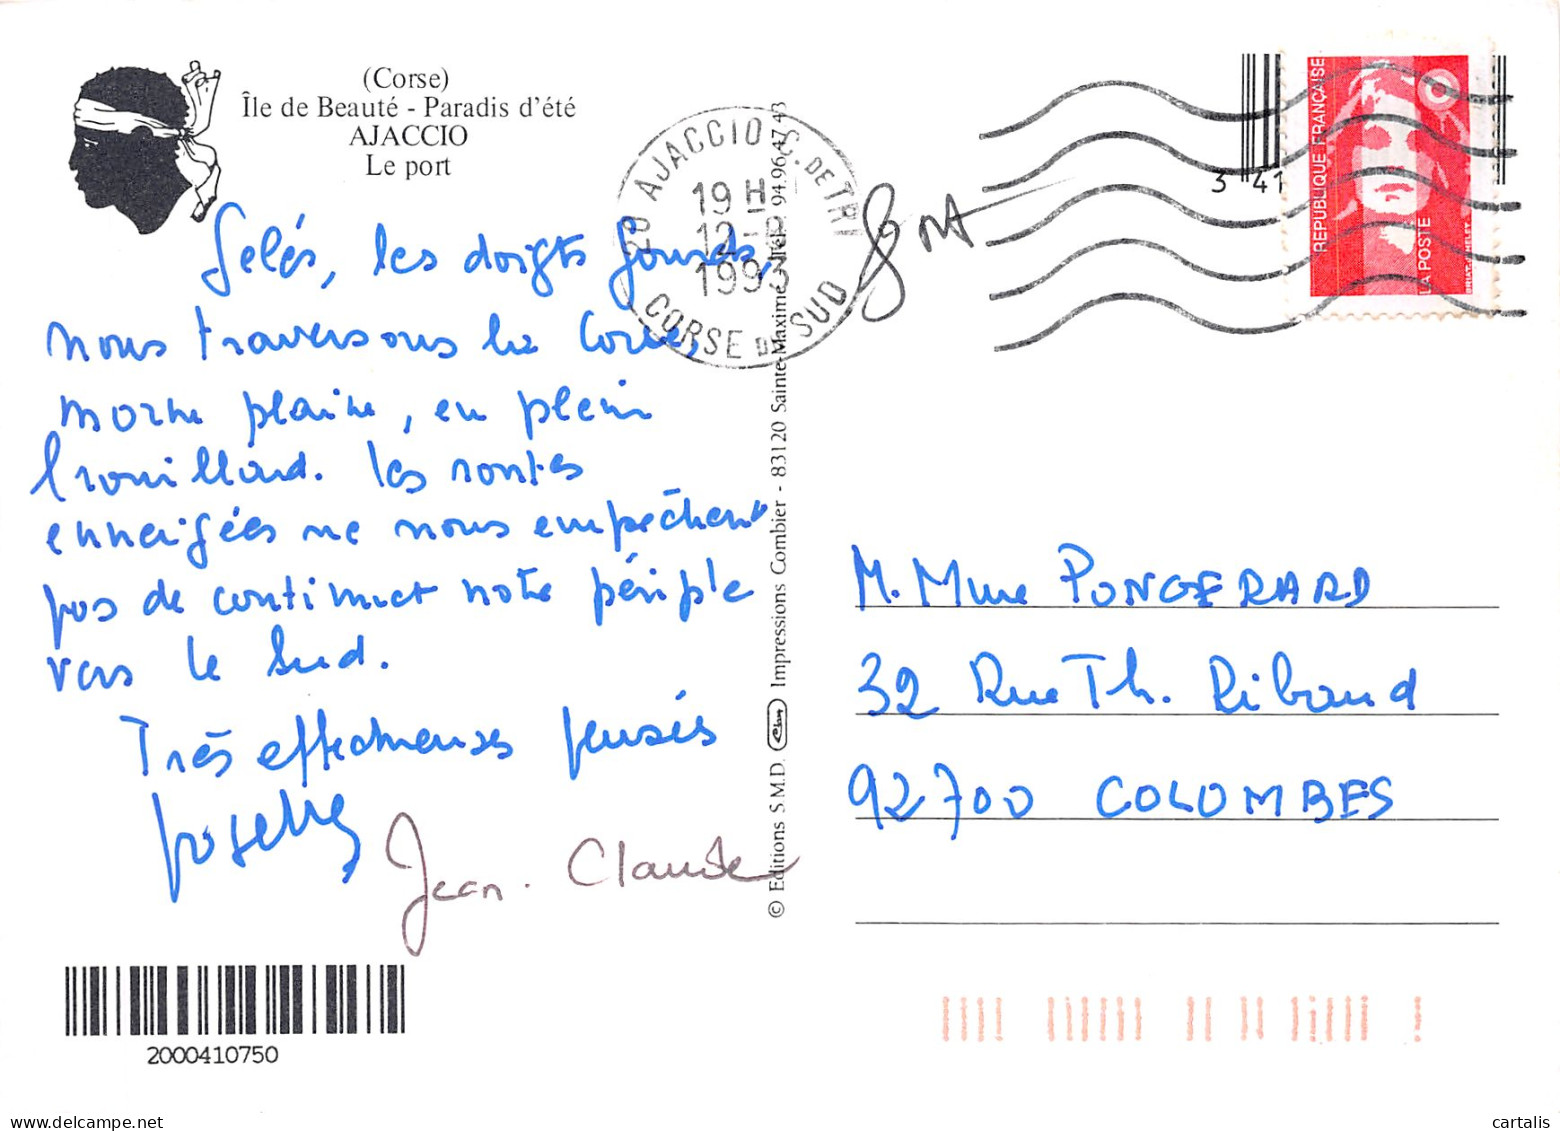 (Corse)
Île de Beauté - Paradis d'été
AJACCIO
Le port
20 AJACCIO C. DE TRI
19 H
12-
1993
CORSE DU SUD
3 41
RÉPUBLIQUE FRANÇAISE
LA POSTE
Gelés, les doigts gourds,
nous traversons la Corse,
morne plaine, en plein
brouillard. Les routes
enneigées ne nous empêchent
pas de continuer notre périple
vers le Sud.
Très affectueuses pensées
Josette
Jean-Claude
© Editions S.M.D. Impressions Combier - 83120 Sainte-Maxime - Tél. 94.96.47.43
M. Mme PONGERARD
32 Rue Th. Ribaud
92700 COLOMBES
2000410750
www.cartalis.com